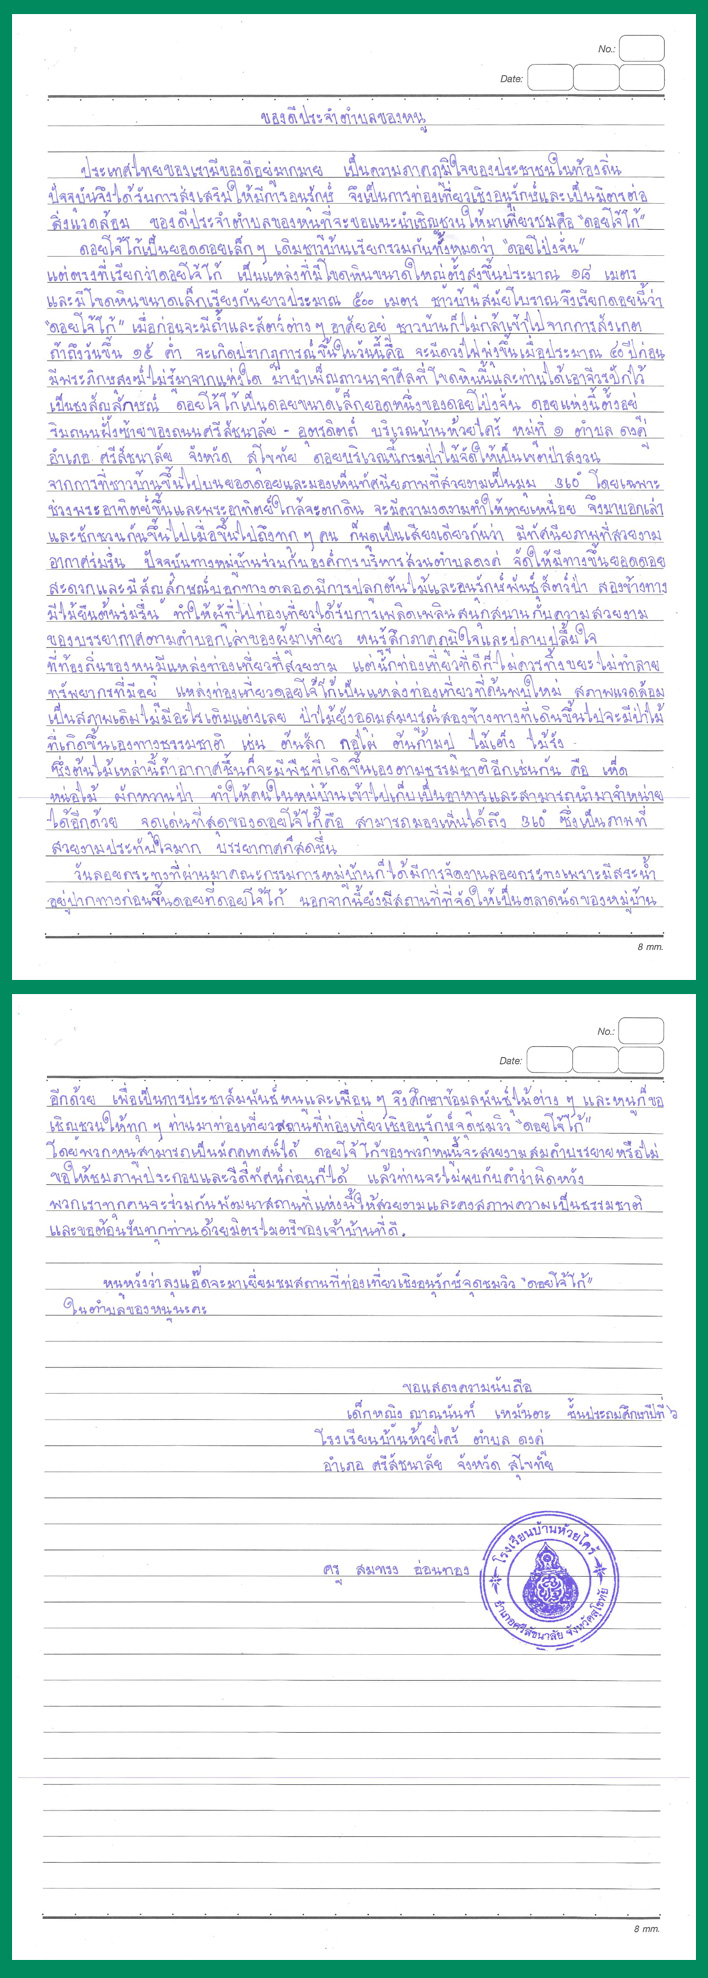 No.:
Date:
ของดีประจำตำบลของหนู
ประเทศไทยของเรามีของดีอยู่มากมาย เป็นความภาคภูมิใจของประชาชนในท้องถิ่น
ปัจจุบันจึงได้รับการส่งเสริมให้มีการอนุรักษ์ จึงเป็นการท่องเที่ยวเชิงอนุรักษ์และเป็นมิตรต่อ
สิ่งแวดล้อม ของดีประจำตำบลของหนูที่จะขอแนะนำเชิญชวนให้มาเที่ยวชมคือ "ดอยโจ้โก้"
ดอยโจ้โก้เป็นยอดดอยเล็กๆ เดิมชาวบ้านเรียกรวมกันทั้งหมดว่า "ดอยโป่งจั่น"
แต่ตรงที่เรียกว่าดอยโจ้โก้ เป็นแหล่งที่มีโขดหินขนาดใหญ่ตั้งสูงขึ้นประมาณ ๑๘ เมตร
และมีโขดหินขนาดเล็กเรียงกันยาวประมาณ ๕๐๐ เมตร ชาวบ้านสมัยโบราณจึงเรียกดอยนี้ว่า
"ดอยโจ้โก้" เมื่อก่อนจะมีถ้ำและสัตว์ต่างๆ อาศัยอยู่ ชาวบ้านก็ไม่กล้าเข้าไปจากการสังเกต
ถ้าถึงวันขึ้น ๑๕ ค่ำ จะเกิดปรากฏการณ์ขึ้นในวันนี้คือ จะมีดวงไฟพุ่งขึ้นเมื่อประมาณ ๔๐ ปีก่อน
มีพระภิกษุสงฆ์ไม่รู้มาจากแห่งใด มาบำเพ็ญภาวนาจำศีลที่โขดหินนี้และท่านได้เอาจีวรปักไว้
เป็นธงสัญลักษณ์ ดอยโจ้โก้เป็นดอยขนาดเล็กยอดหนึ่งของดอยโป่งจั่น ดอยแห่งนี้ตั้งอยู่
ริมถนนฝั้งซ้ายของถนนศรีสัชนาลัย - อุตรดิตถ์ บริเวณบ้านห้วยไคร้ หมู่ที่ ๑ ตำบล ดงคู่
อำเภอ ศรีสัชนาลัย จังหวัด สุโขทัย ดอยบริเวณนี้กรมป่าไม้จัดให้เป็นเขตป่าสงวน
จากการที่ชาวบ้านขึ้นไปบนยอดดอยและมองเห็นทัศนียภาพที่สวยงามเป็นมุม 360° โดยเฉพาะ
ช่วงพระอาทิตย์ขึ้นและพระอาทิตย์ใกล้จะตกดิน จะมีความงดงามทำให้หายเหนื่อย จึงมาบอกเล่า
และชักชวนกันขึ้นไปเมื่อขึ้นไปถึงทุกๆ คน ก็พูดเป็นเสียงเดียวกันว่า มีทัศนียภาพที่สวยงาม
อากาศร่มรื่น ปัจจุบันทางหมู่บ้านร่วมกับองค์การบริหารส่วนตำบลดงคู่ จัดให้มีทางขึ้นยอดดอย
สะดวกและมีสัญลักษณ์บอกทางตลอดมีการปลูกต้นไม้และอนุรักษ์พันธุ์สัตว์ป่า สองข้างทาง
มีไม้ยืนต้นร่มรื่น ทำให้ผู้ที่ไปท่องเที่ยวได้รับการเพลิดเพลินสนุกสนานกับความสวยงาม
ของบรรยากาศตามคำบอกเล่าของผู้มาเที่ยว หนูรู้สึกภาคภูมิใจและปลาบปลื้มใจ
ที่ท้องถิ่นของหนูมีแหล่งท่องเที่ยวที่สวยงาม แต่นักท่องเที่ยวที่ดีก็ไม่ควรทิ้งขยะไม่ทำลาย
ทรัพยากรที่มีอยู่ แหล่งท่องเที่ยวดอยโจ้โก้เป็นแหล่งท่องเที่ยวที่ค้นพบใหม่ สภาพแวดล้อม
เป็นสภาพเดิมไม่มีอะไรเติมแต่งเลย ป่าไม้ยังอุดมสมบูรณ์สองข้างทางที่เดินขึ้นไปจะมีป่าไม้
ที่เกิดขึ้นเองทางธรรมชาติ เช่น ต้นสัก กอไผ่ ต้นก้ามปู ไม้เต็ง ไม้รัง
ซึ่งต้นไม้เหล่านี้ถ้าอากาศชื้นก็จะมีพืชที่เกิดขึ้นเองตามธรรมชาติอีกเช่นกัน คือ เห็ด
หน่อไม้ ผักหวานป่า ทำให้คนในหมู่บ้านเข้าไปเก็บเป็นอาหารและสามารถนำมาจำหน่าย
ได้อีกด้วย จุดเด่นที่สุดของดอยโจ้โก้คือ สามารถมองเห็นได้ถึง 360° ซึ่งเป็นภาพที่
สวยงามประทับใจมาก บรรยากาศก็สดชื่น
วันลอยกระทงที่ผ่านมาคณะกรรมการหมู่บ้านก็ได้มีการจัดงานลอยกระทงเพราะมีสระน้ำ
อยู่ปากทางก่อนขึ้นดอยที่ดอยโจ้โก้ นอกจากนี้ยังมีสถานที่ที่จัดให้เป็นตลาดนัดของหมู่บ้าน
8 mm.
No.:
Date:
อีกด้วย เพื่อเป็นการประชาสัมพันธ์ หนูและเพื่อนๆ จึงศึกษาข้อมูลพันธุ์ไม้ต่างๆ และหนูก็ขอ
เชิญชวนให้ทุกๆ ท่านมาท่องเที่ยวสถานที่ท่องเที่ยวเชิงอนุรักษ์จุดชมวิว "ดอยโจ้โก้"
โดยพวกหนูสามารถเป็นมัคคุเทศน์ได้ ดอยโจ้โก้ของพวกหนูนี้จะสวยงามสมคำบรรยายหรือไม่
ขอให้ชมภาพประกอบและวีดีทัศน์ก่อนก็ได้ แล้วท่านจะไม่พบกับคำว่าผิดหวัง
พวกเราทุกคนจะร่วมกันพัฒนาสถานที่แห่งนี้ให้สวยงามและคงสภาพความเป็นธรรมชาติ
และขอต้อนรับทุกท่านด้วยมิตรไมตรีของเจ้าบ้านที่ดี.
หนูหวังว่าลุงแอ๊ดจะมาเยี่ยมชมสถานที่ท่องเที่ยวเชิงอนุรักษ์จุดชมวิว "ดอยโจ้โก้"
ในตำบลของหนูนะคะ
ขอแสดงความนับถือ
เด็กหญิง ญาณนันท์ เหมันตะ ชั้นประถมศึกษาปีที่ ๖
โรงเรียนบ้านห้วยไคร้ ตำบล ดงคู่
อำเภอ ศรีสัชนาลัย จังหวัด สุโขทัย
โรงเรียนบ้านห้วยไคร้
ครู สมทรง อ่อนทอง
อำเภอศรีสัชนาลัย จังหวัดสุโขทัย
8 mm.